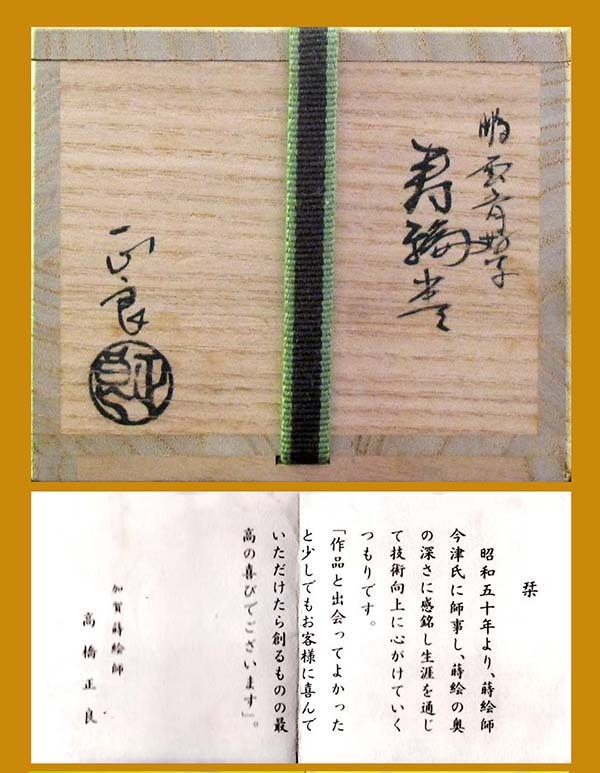 正良
栞
昭和五十年より、蒔絵師
今津氏に師事し、蒔絵の奥
の深さに感銘し生涯を通じ
て技術向上に心がけていく
つもりです。
「作品と出会ってよかった
と少しでもお客様に喜んで
いただけたら創るものの最
高の喜びでございます」。
加賀蒔絵師
高橋正良